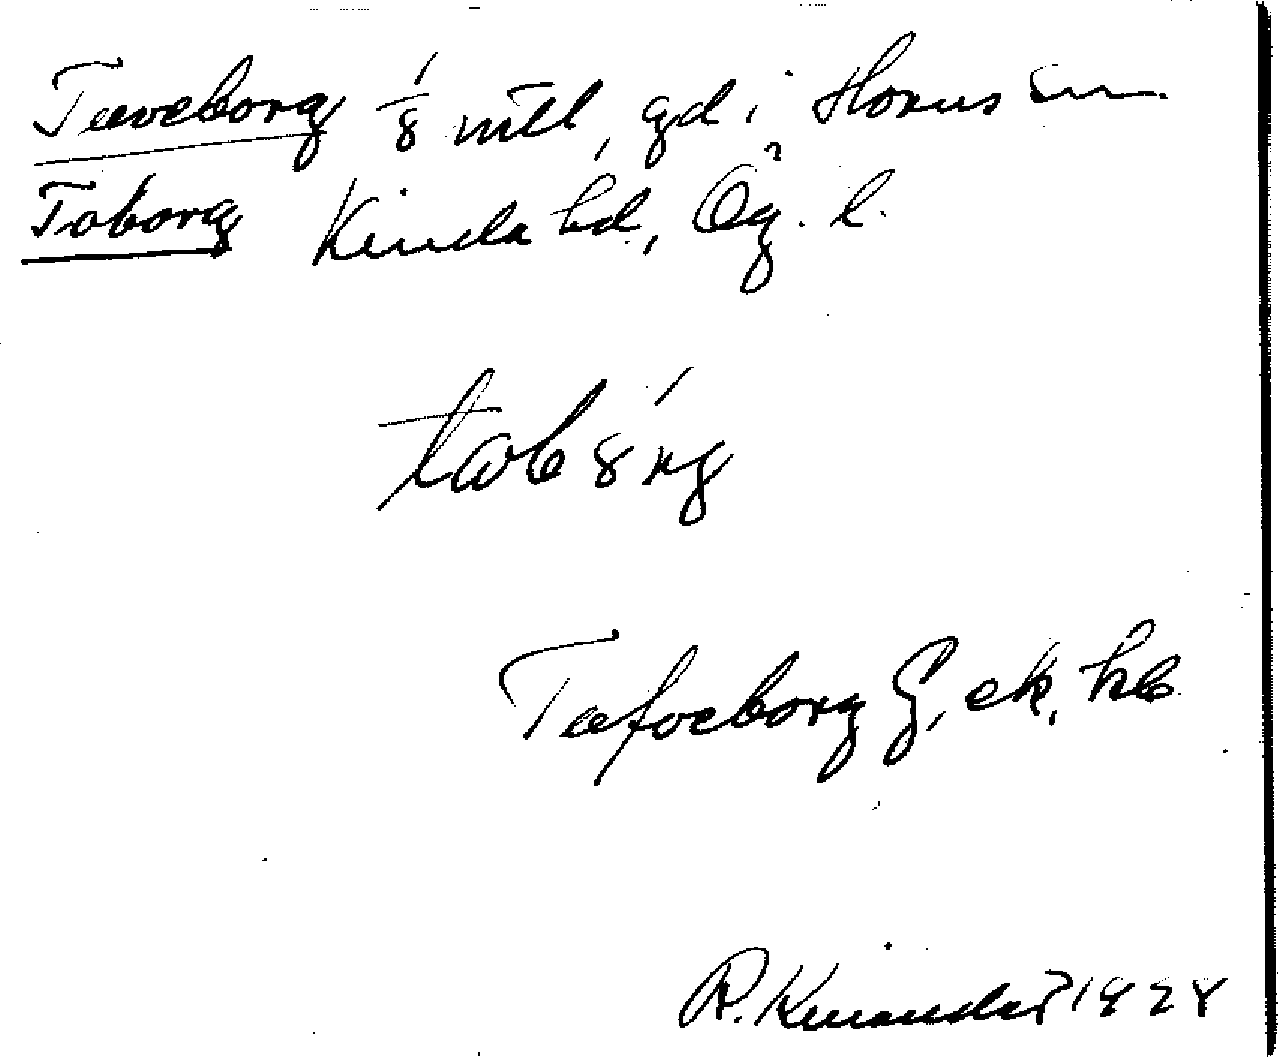 Tæveborg 1/8 mtl, gd i Horns sn
Toborg Kinda hd, Ög. l.
Tæfoeborg G, ek, kb
R. Kinander 1928